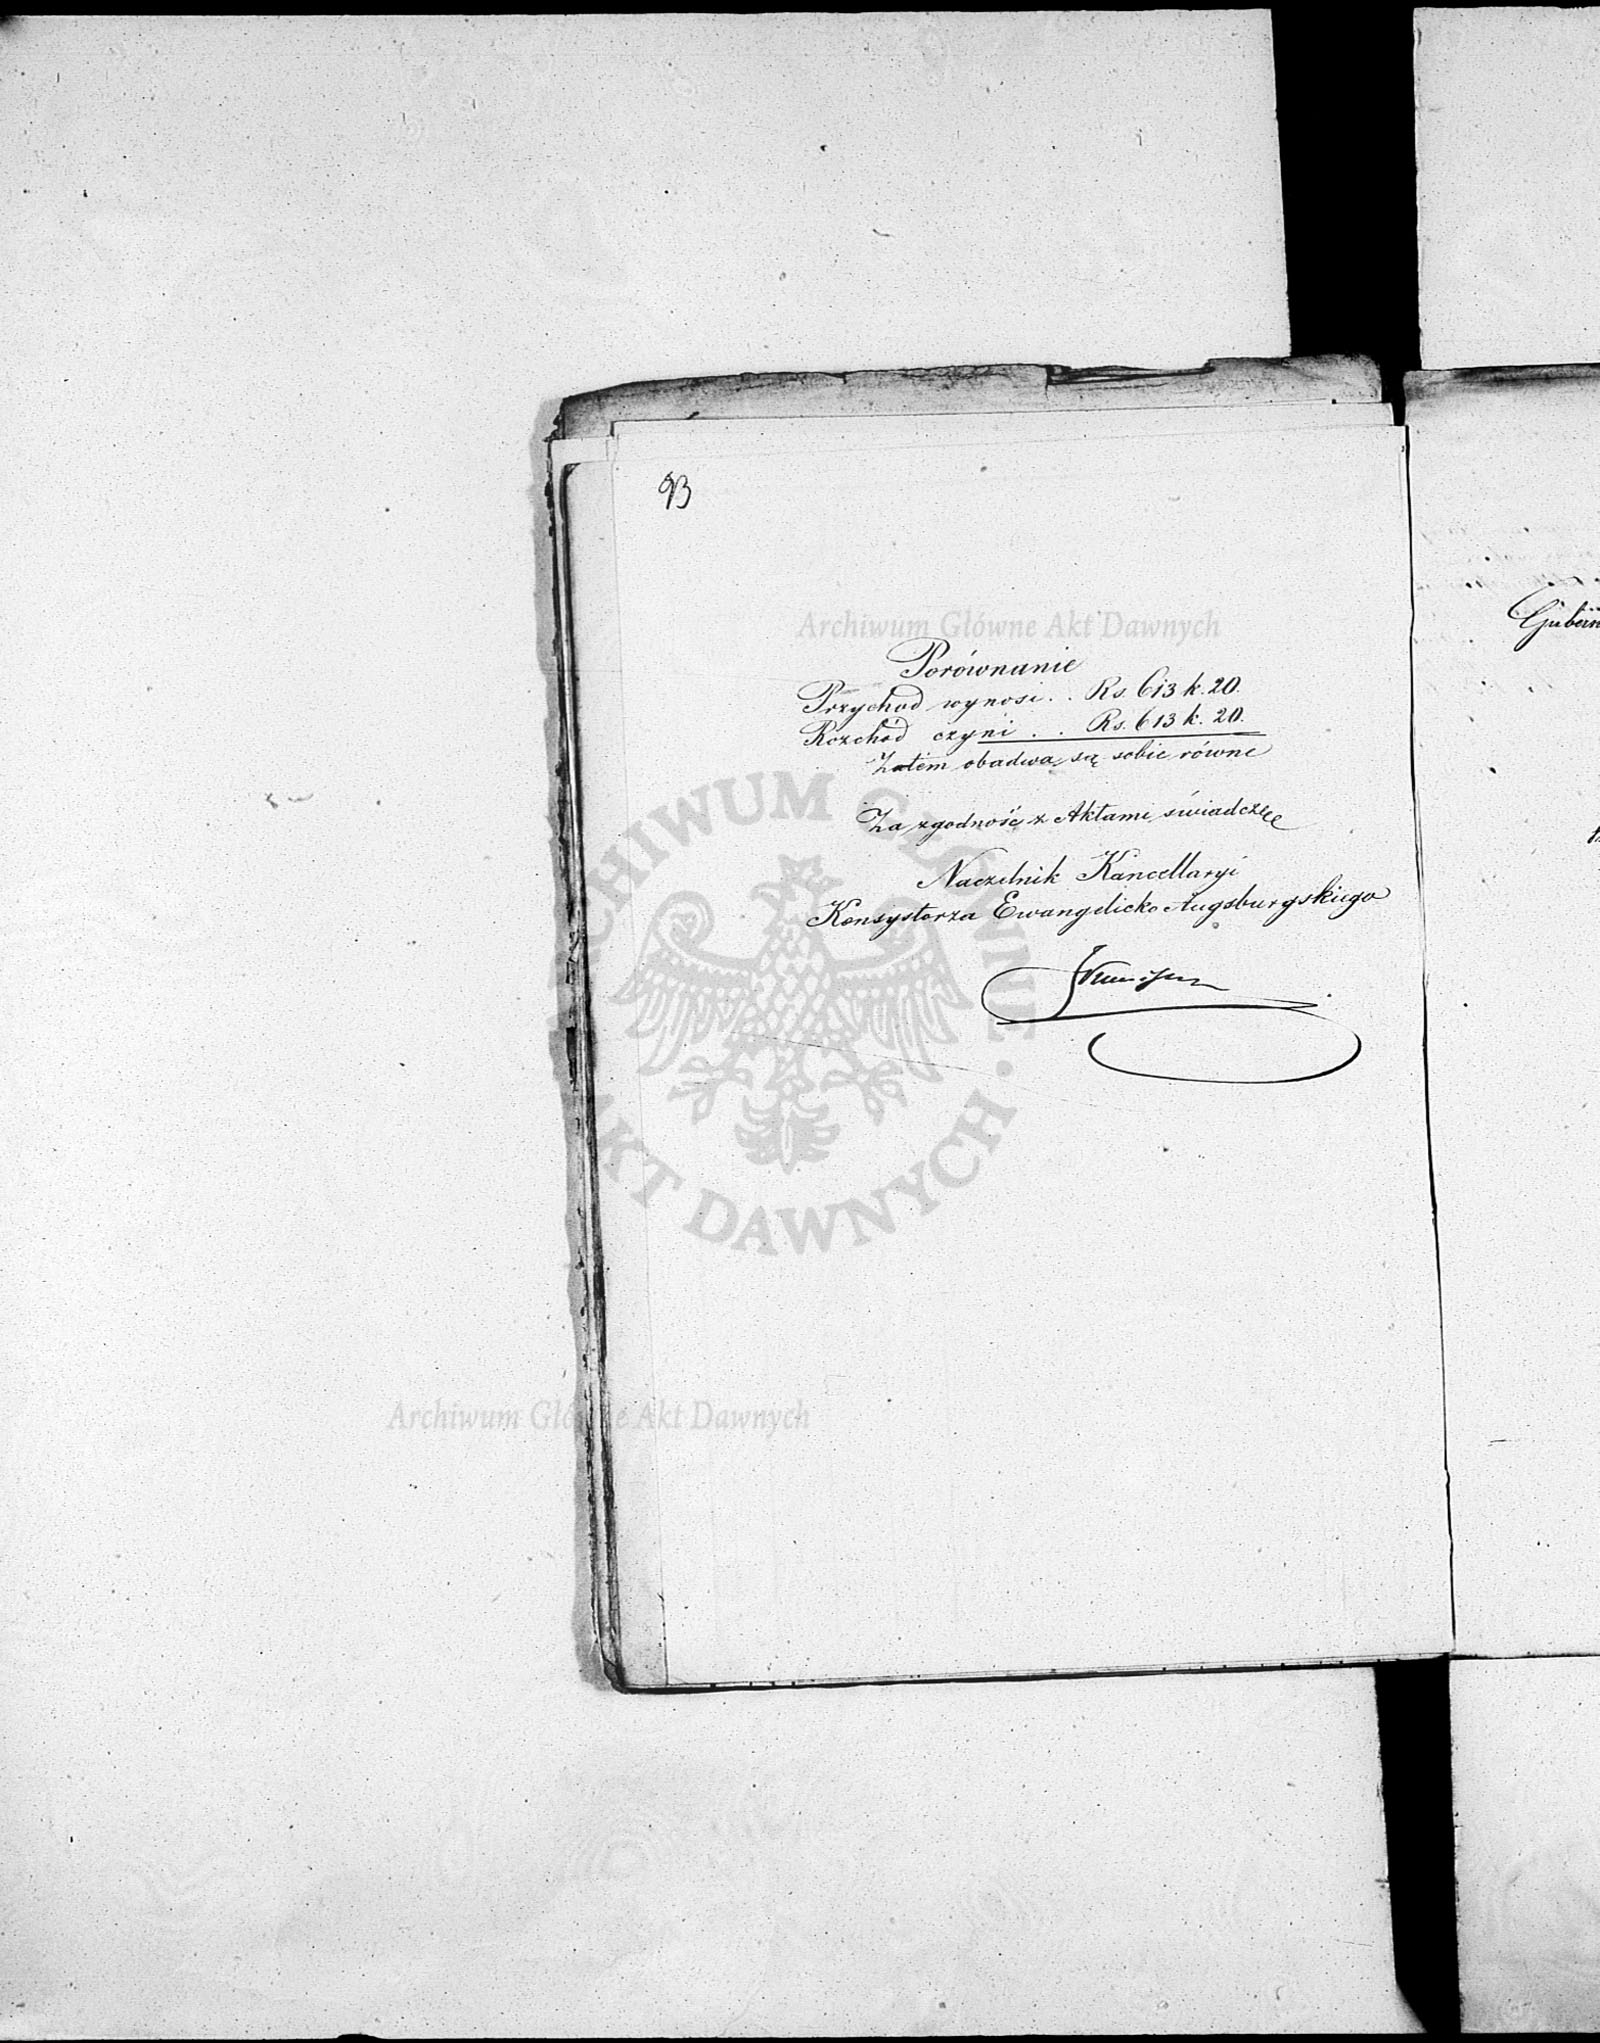 93
Archiwum Główne Akt Dawnych
Porównanie
Przychod wynosi . . Rs. 613 k. 20.
Rozchód czyni . . Rs. 613 k. 20.
Zatem obadwa są sobie równe
Za zgodność z Aktami świadczę
Naczelnik Kancellaryi
Konsystorza Ewangelicko Augsburgskiego
ARCHIWUM GŁÓWNE · AKT DAWNYCH ·
Archiwum Główne Akt Dawnych